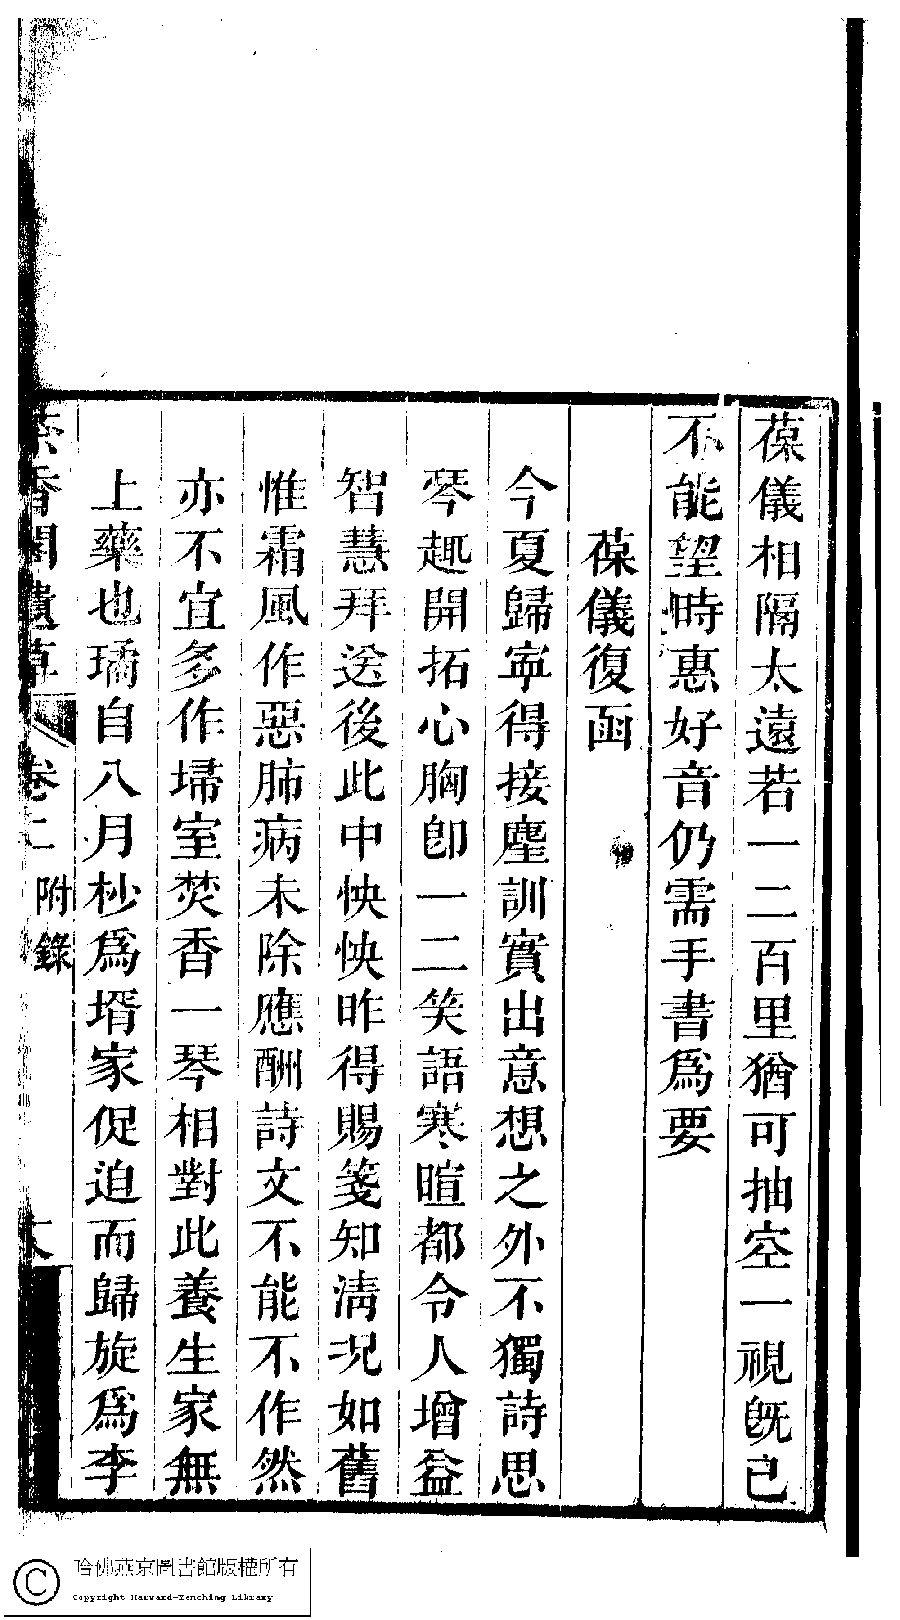 葆儀相隔太遠若一二百里猶可抽空一視既已
不能望時惠好音仍需手書爲要
葆儀復函
今夏歸寧得接塵訓實出意想之外不獨詩思
琴趣開拓心胸卽一二笑語寒暄都令人增益
智慧拜送後此中怏怏昨得賜箋知清况如舊
惟霜風作惡肺病未除應酬詩文不能不作然
亦不宜多作埽室焚香一琴相對此養生家無
上藥也璚自八月杪爲壻家促迫而歸旋爲李
茶香閣遺草
卷二
附錄
哈佛燕京圖書館版權所有
Copyright Harvard-Yenching Library